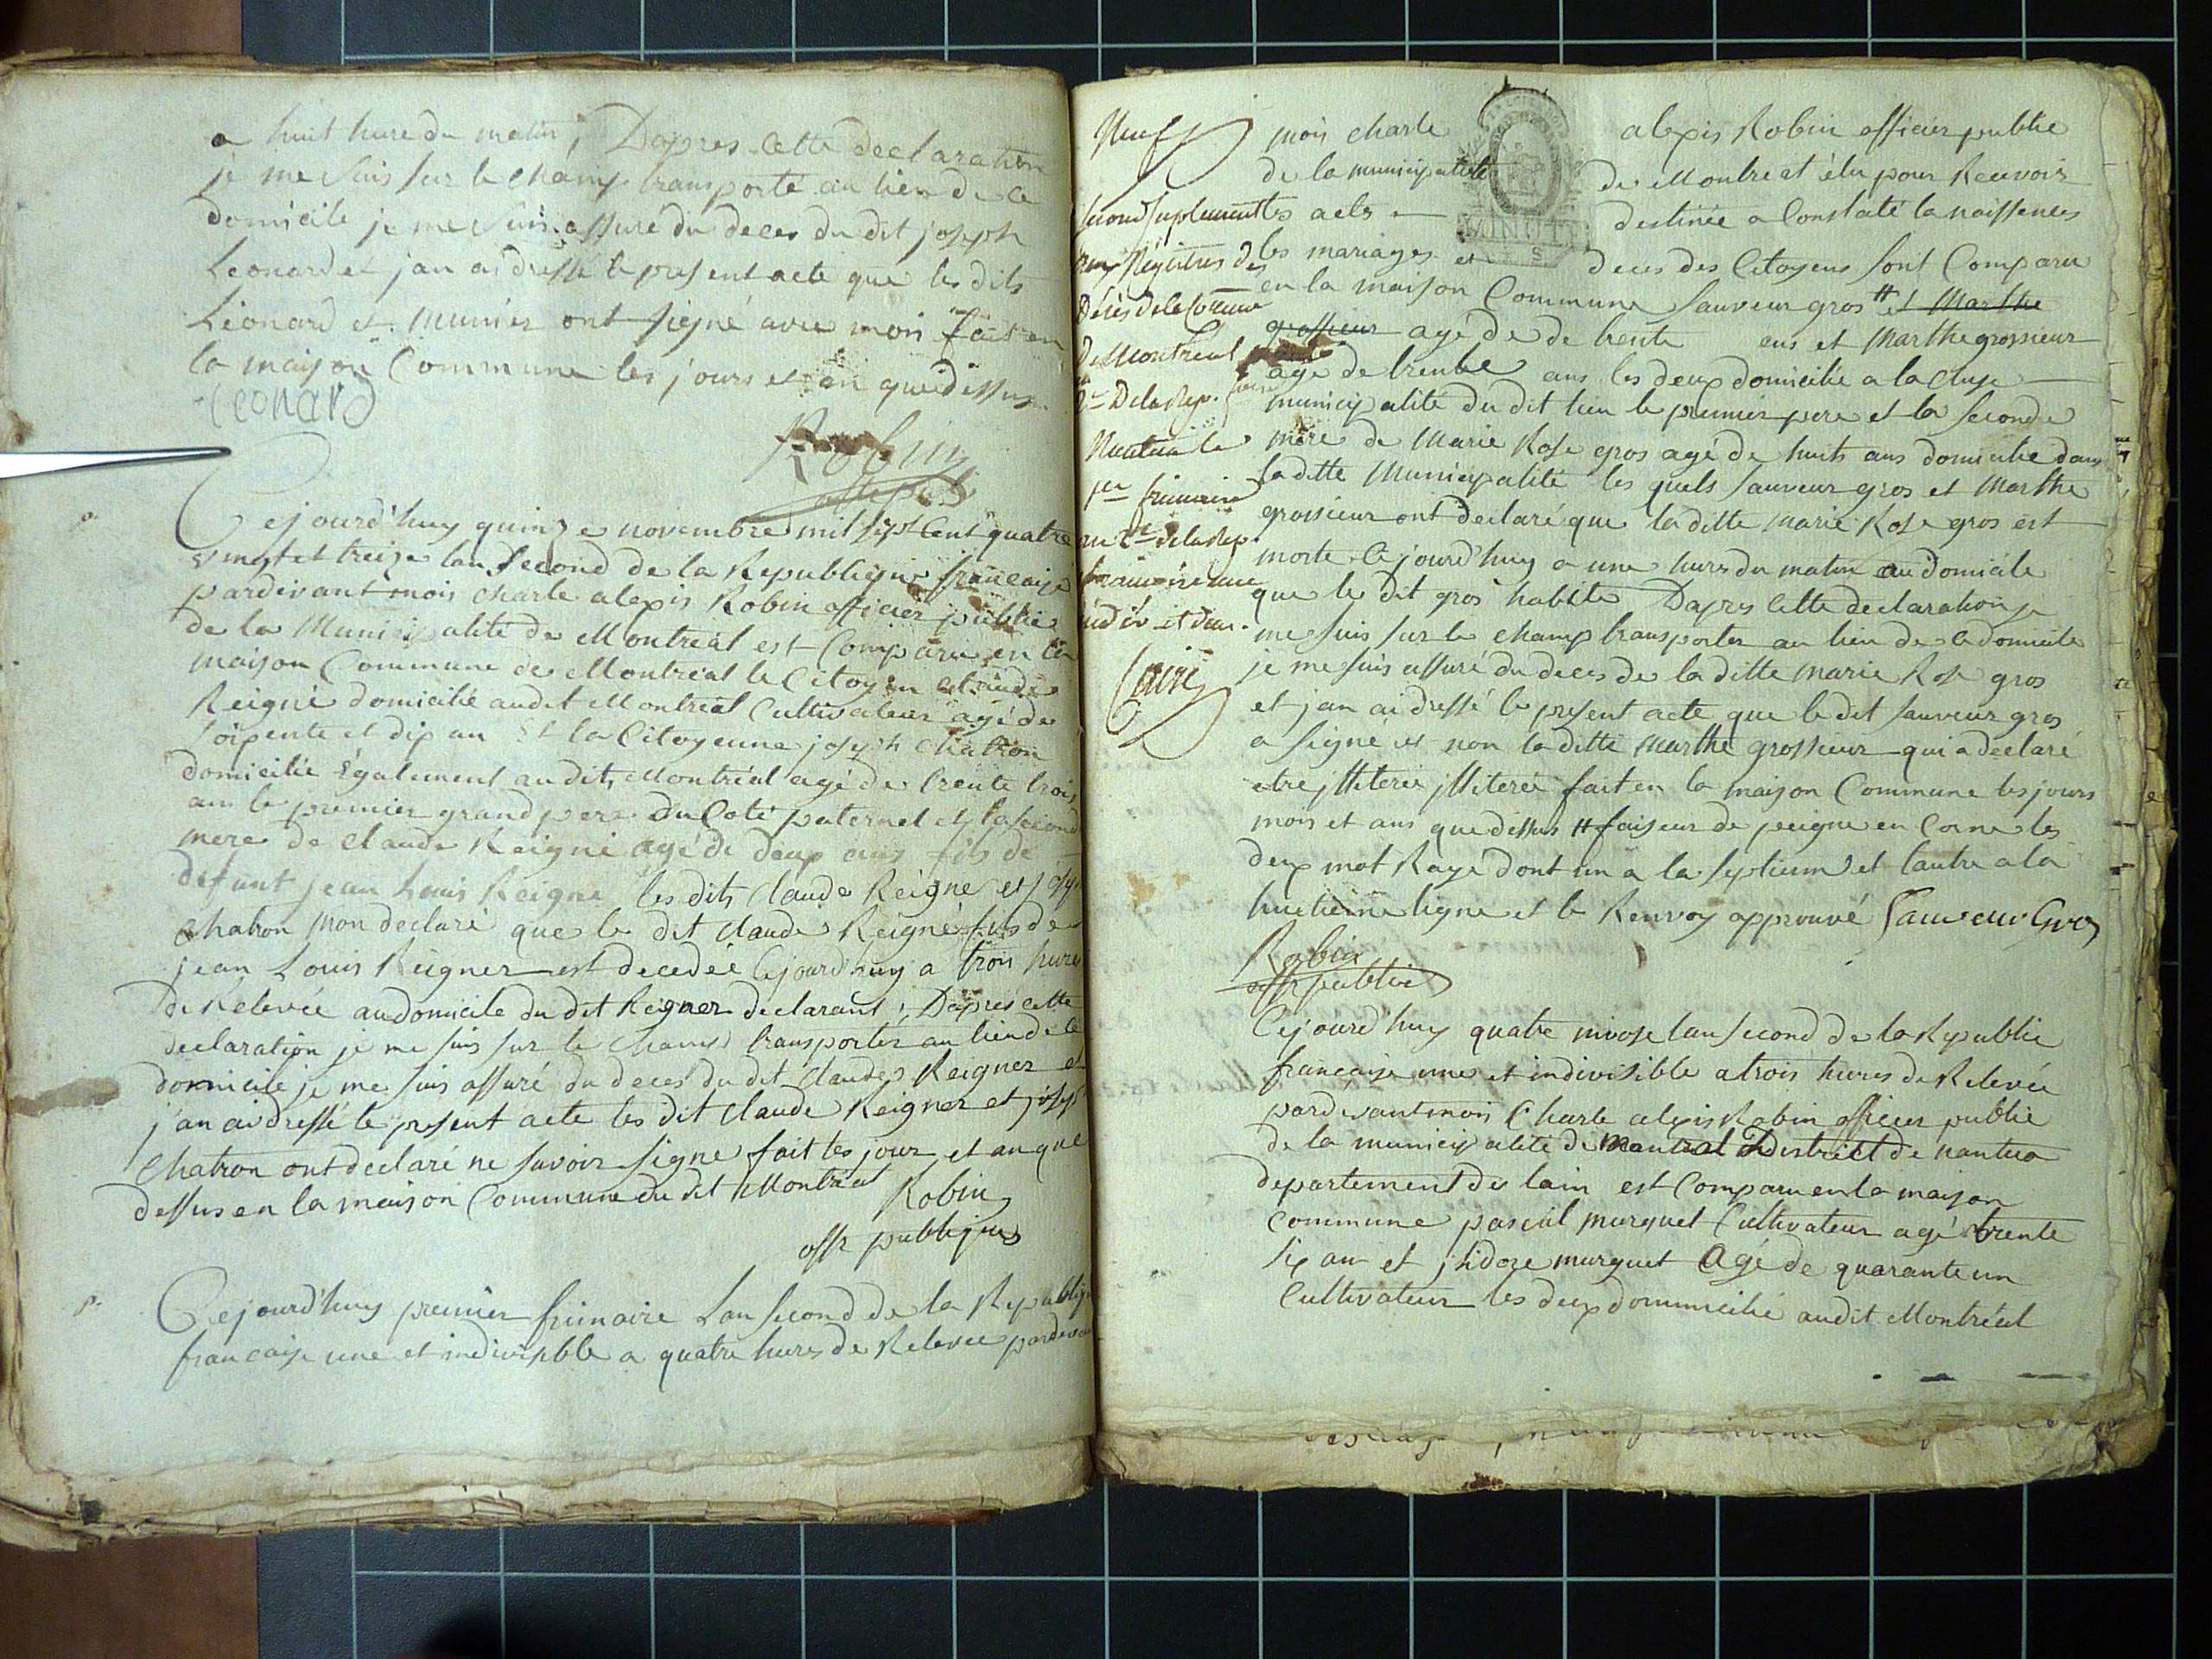 a huit hure du matin, Dapres Cette declaration
je me suis sur le champ transporté au lieu de ce
domicile je me suis assuré du deces du dit joseph
Leonard et jan ai dressé le present acte que les dits
Léonard et Munier ont signé avec mois fait en
la maison Commune les jours et an que dessus
Leonard
Robin
Cejourd'huy quinze novembre mil sept Cent quatre
vingt et treize lan Second de la Republique francaise
pardevant mois charle alexis Robin officier public
de la Municipalité de Montréal est Comparu en la
maison Commune de Montréal le Citoyen Claude
Reigné domicilié audit Montréal Cultivateur agé de
soixente et dix an Et la Citoyenne joseph Chatron
domicilié Egalement au dit Montréal agé de trente trois
ans le premier grand pere du Coté paternel et la second
mere de Claude Reigné agé de deux ans fils de
défunt jean Louis Reigné les dits Claude Reigné et josep
Chatron mon declaré que le dit Claude Reigné fils de
jean Louis Reigner est decedéé Cejourd'huy a trois hures
de Relevée au domicile du dit Reigner declarant; Dapres cette
declaration je me suis sur le champ transporter au lieu de ce
domicile je me suis assuré du deces du dit Claude Reigner et
j'an ai dressé le present acte les dit Claude Reigner et josep
Chatron ont declaré ne savoir signe fait les jour et an que
dessus en la maison Commune du dit Montréal Robin
offr publique
Cejourd'huy premier frimaire Lan second de la Republiqu
francaise une et indivisible a quatre hures de Relevée pardevan
Neuf
second suplement
aux Registres des
Décès de la Comune
de Montréal
2e De la Rep.
Nantua le
1er frimaire
an 2e de la Rep.
francoise une
indiv. et
mois charle alexis Robin officier public
de la municipalité de Montreal élu pour Recevoir
les acts destinée a Constaté la naissences
les mariages et deces des Citoyens sont Comparu
en la maison Commune sauveur gros # et Marthe
grossieur agé de de trente ans et Marthe grossieur
agé de trente ans les deux domicilié a la Cluse
municipalité du dit lieu le premier pere et la seconde
mère de Marie Rose gros agé de huits ans domicilié dans
la ditte Municipalité les quels sauveur gros et Marthe
grossieur ont declaré que la ditte Marie Rose gros est
morte Cejourd'huy a une hures du matin au domicile
que le dit gros habite Dapres Cette declaration je
me suis sur le champ transporter au lieu de ce domicile
je me suis assuré du deces de la ditte Marie Rose gros
et jan ai dressé le present acte que le dit sauveur gros
a signe et non la ditte Marthe grossieur qui a declaré
etre jlliterée jlliterée fait en la maison Commune les jours
mois et ans que dessus # faiseur de peigne en Corne les
deux mot Rayé dont un a la septieme et lautre a la
huitième ligne et le Renvoy approuvé Sauveur Gros
Robin
offr public
Cejourd'huy quatre nivose lan second de la Republic
francaise une et indivisible a trois hures de Relevée
pardevant mois Charle alexis Robin officier public
de la municipalité de Montreal District de nantua
departement de lain est Comparu en la maison
Commune pascal murguet Cultivateur agé trente
six an et jsidore murguet Agé de quarante un
Cultivateur les deux dommicilié audit Montréal